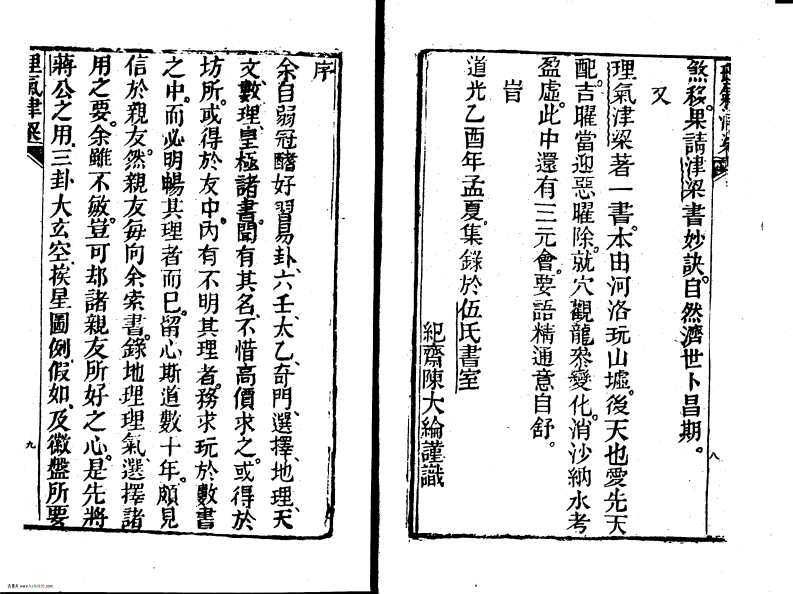 煞移果請津梁書妙訣自然濟世卜昌期。
又
理氣津梁著一書本由河洛玩山墟後天也愛先天
配吉曜當迎惡曜除就穴觀龍叅變化消沙納水考
盈虛此中還有三元會要語精通意自舒。
旹
道光乙酉年孟夏集錄於伍氏書室
紀齋陳大綸謹識
八
序
余自弱冠酷好習易卦、六壬、太乙、奇門、選擇、地理、天
文、數理、皇極諸書聞有其名、不惜高價求之、或得於
坊所、或得於友中、內有不明其理者務求玩於數書
之中、而必明暢其理者而已。留心斯道數十年。頗見
信於親友然親友每向余索書。錄地理理氣選擇諸
用之要。余雖不敏。豈可却諸親友所好之心。是先將
蔣公之用、三卦大玄空、挨星圖例、假如、及徽盤所要
理氣津梁
九